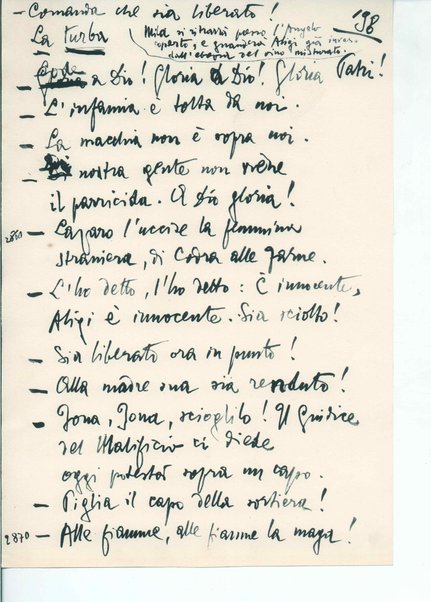 — Comanda che sia liberato!
198
La turba
Mila si ritrarrà presso l'Angelo
aperto, e guarderà Aligi già inva-
dall'ebrezza del vino misturato.
— Lode a Dio! Gloria a Dio! Gloria Patri!
— L'infamia è tolta da noi.
— La macchia non è sopra noi.
— Di nostra gente non viene
il parricida. A Dio gloria!
2860 — Lazaro l'uccise la femmina
straniera, di Codra alle Farne.
— L'ho detto, l'ho detto: È innocente,
Aligi è innocente. Sia sciolto!
— Sia liberato ora in punto!
— Alla madre sua sia renduto!
— Jona, Jona, scioglilo! Il Giudice
del Malificio ci diede
oggi potestà sopra un capo.
— Piglia il capo della sortiera!
2870 — Alle fiamme, alle fiamme la maga!